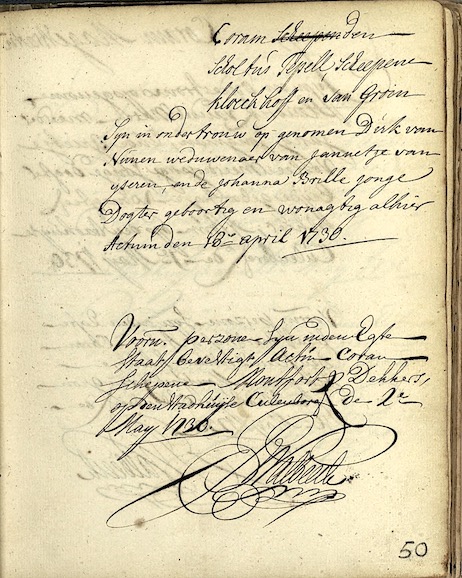 Coram Scheepen den
Scholtus Tpell Scheepene
kloekhoff en van Groin
Syn in ondertrouw op genomen Dirk van
Nunen weduwenaer van Jannetje van
yseren, ende johanna Brille jonge
Dogter geboortig en wonagtig alhier
Actum den 18en april 1730.
Voorn. perzone Syn inden Egte
staat bevestigt Actu Coram
Schepene Montfort & Dekkers,
op den stadhuijse Culenborg de 2e
May 1730.
50